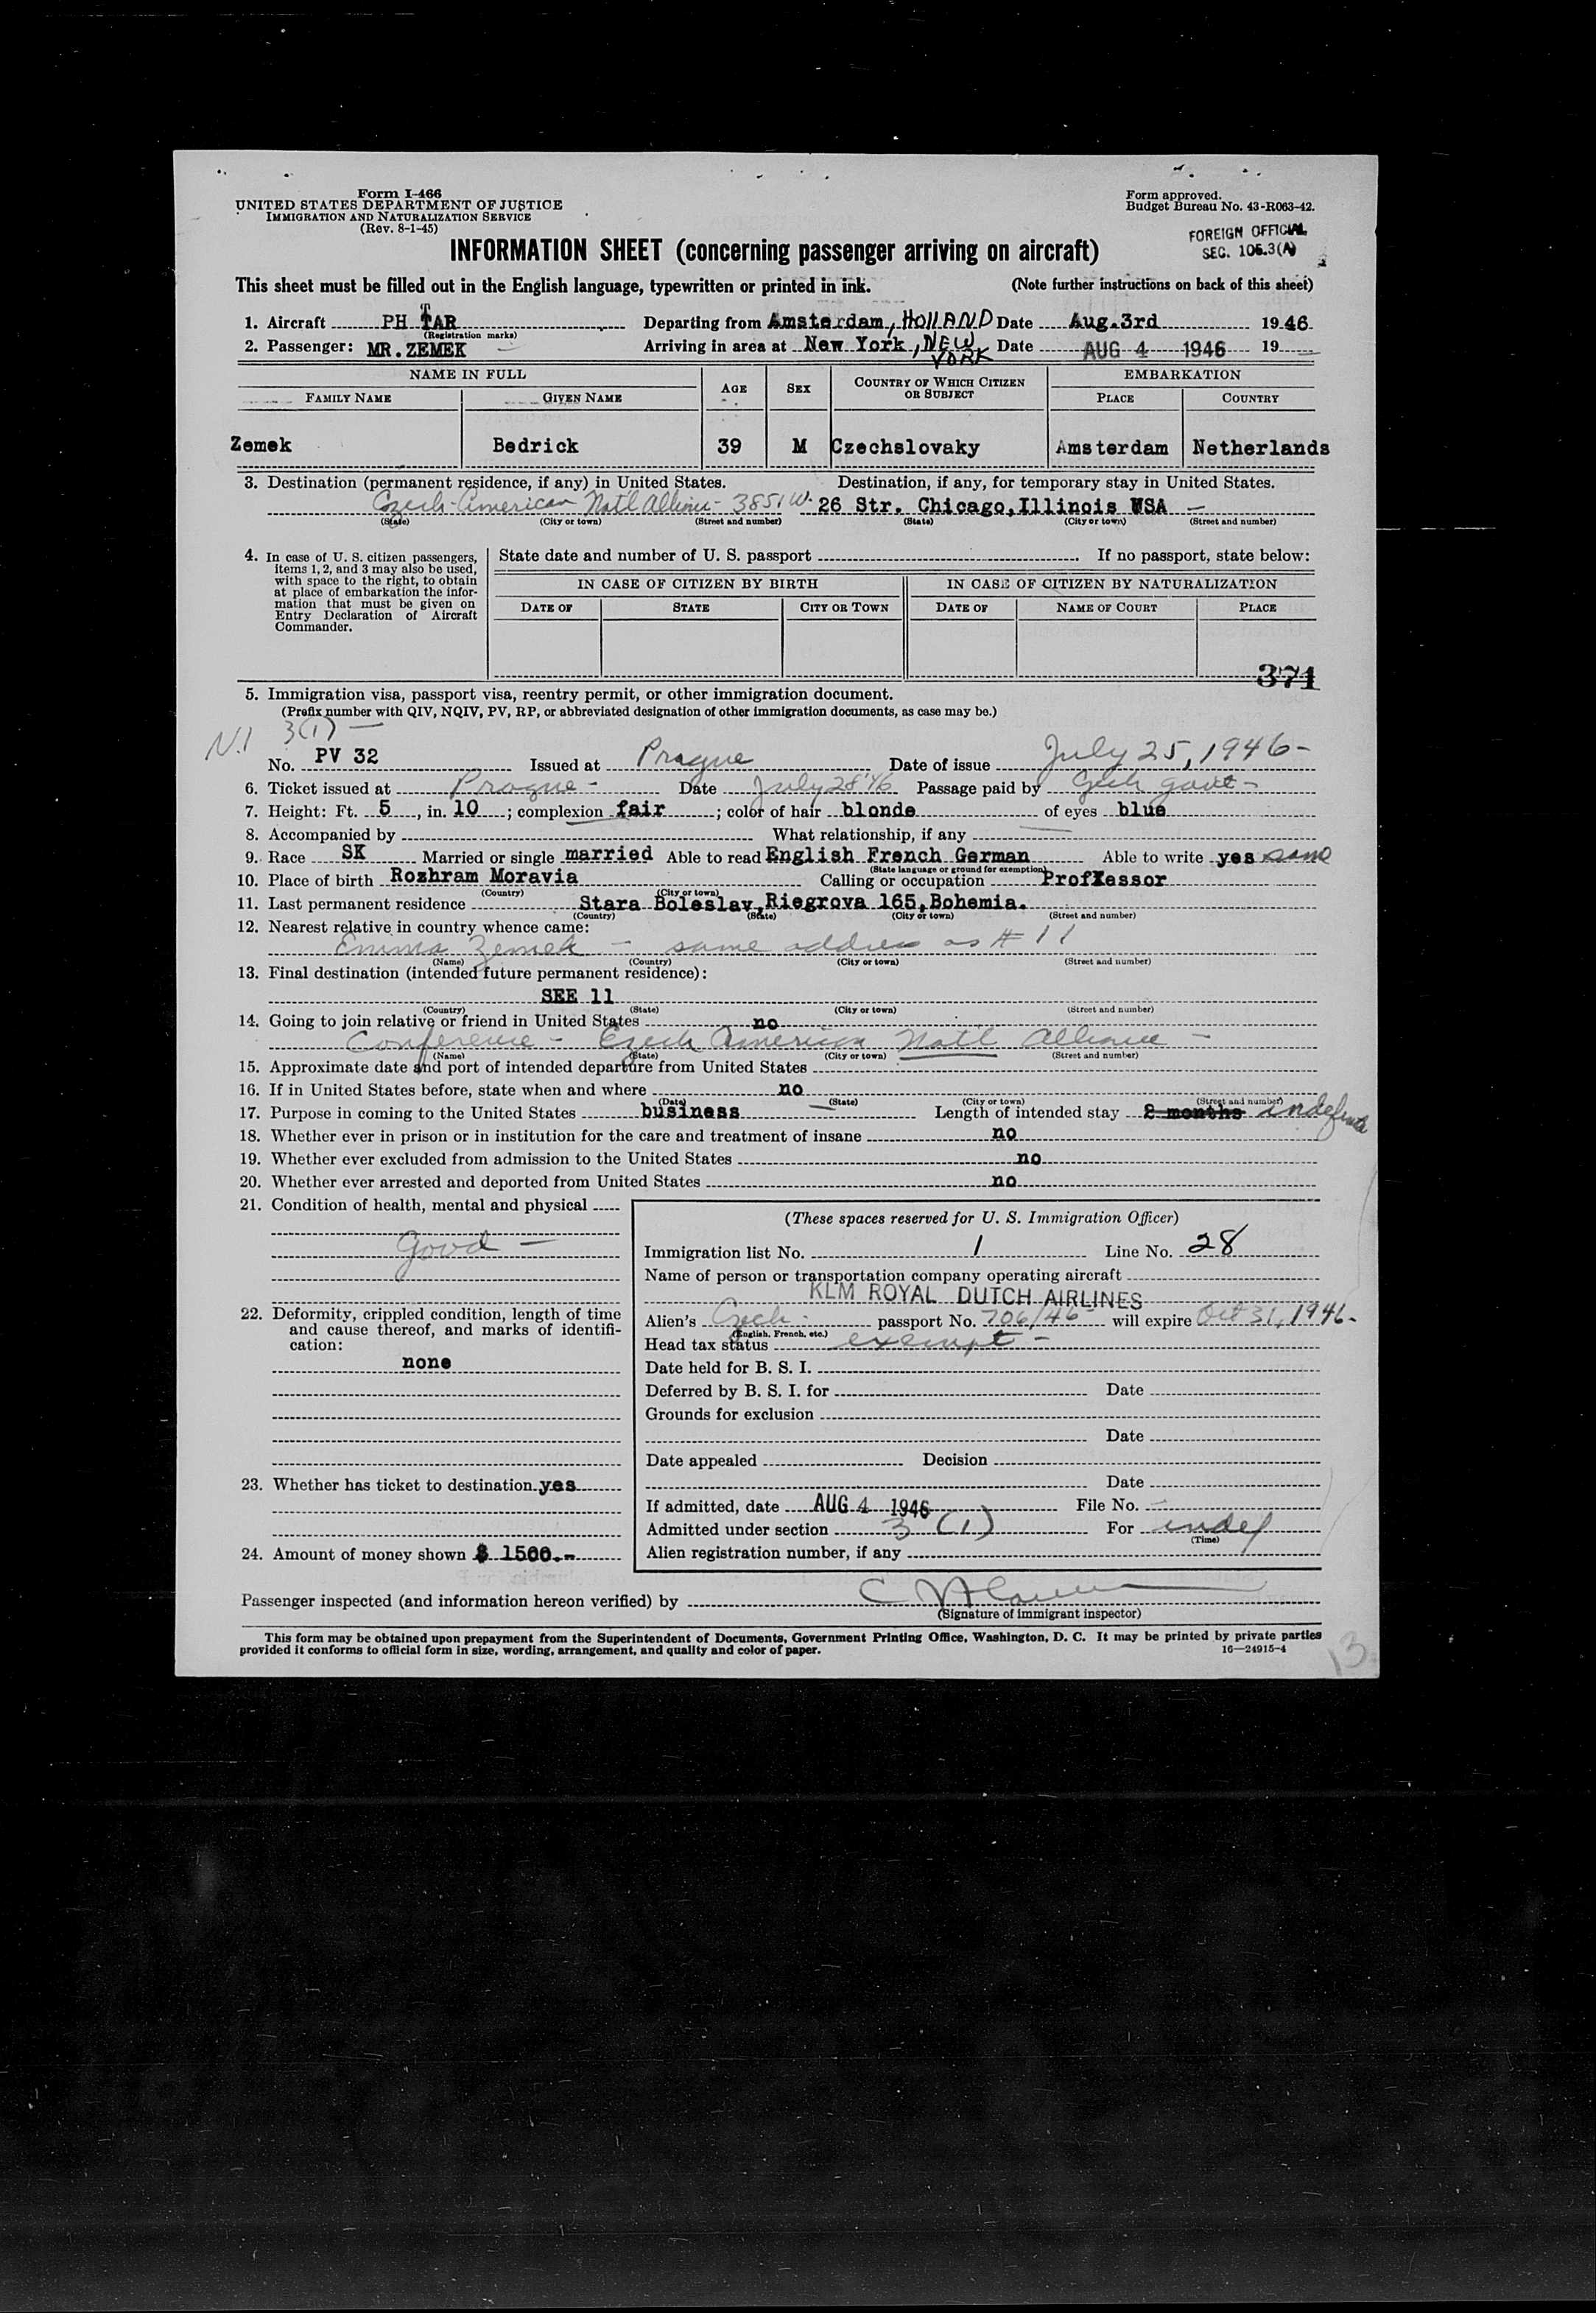 Form I-466
UNITED STATES DEPARTMENT OF JUSTICE
IMMIGRATION AND NATURALIZATION SERVICE
(Rev. 8-1-45)
Form approved.
Budget Bureau No. 43-R063-42.
FOREIGN OFFICIAL
SEC. 105.3(A)
INFORMATION SHEET (concerning passenger arriving on aircraft)
This sheet must be filled out in the English language, typewritten or printed in ink. (Note further instructions on back of this sheet)
1. Aircraft PH TAR Departing from Amsterdam, HOLLAND Date Aug.3rd 1946
(Registration marks)
2. Passenger: MR.ZEMEK Arriving in area at New York, NEW YORK Date AUG 4 1946 19
NAME IN FULL AGE SEX COUNTRY OF WHICH CITIZEN OR SUBJECT EMBARKATION
FAMILY NAME GIVEN NAME PLACE COUNTRY
Zemek Bedrick 39 M Czechslovaky Amsterdam Netherlands
3. Destination (permanent residence, if any) in United States. Destination, if any, for temporary stay in United States.
Czech-American Natl Alliance - 3851 W. 26 Str. Chicago,Illinois USA -
(State) (City or town) (Street and number) (State) (City or town) (Street and number)
4. In case of U. S. citizen passengers, items 1, 2, and 3 may also be used, with space to the right, to obtain at place of embarkation the information that must be given on Entry Declaration of Aircraft Commander.
State date and number of U. S. passport If no passport, state below:
IN CASE OF CITIZEN BY BIRTH IN CASE OF CITIZEN BY NATURALIZATION
DATE OF STATE CITY OR TOWN DATE OF NAME OF COURT PLACE
371
5. Immigration visa, passport visa, reentry permit, or other immigration document.
(Prefix number with QIV, NQIV, PV, RP, or abbreviated designation of other immigration documents, as case may be.)
N.I 3(1) -
No. PV 32 Issued at Prague Date of issue July 25, 1946-
6. Ticket issued at Prague- Date July 28'46 Passage paid by Czech govt-
7. Height: Ft. 5, in. 10; complexion fair; color of hair blonde of eyes blue
8. Accompanied by What relationship, if any
9. Race SK Married or single married Able to read English French German Able to write yes same
(State language or ground for exemption)
10. Place of birth Rozhram Moravia Calling or occupation Professor
(Country) (City or town)
11. Last permanent residence Stara Boleslav,Riegrova 165,Bohemia.
(Country) (State) (City or town) (Street and number)
12. Nearest relative in country whence came:
Emma Zemek - same address as # 11
(Name) (Country) (City or town) (Street and number)
13. Final destination (intended future permanent residence):
SEE 11
(Country) (State) (City or town) (Street and number)
14. Going to join relative or friend in United States no
Conference - Czech American Natl Alliance -
(Name) (State) (City or town) (Street and number)
15. Approximate date and port of intended departure from United States
16. If in United States before, state when and where no
(Date) (State) (City or town) (Street and number)
17. Purpose in coming to the United States business Length of intended stay 2 months indefinite
18. Whether ever in prison or in institution for the care and treatment of insane no
19. Whether ever excluded from admission to the United States no
20. Whether ever arrested and deported from United States no
21. Condition of health, mental and physical
Good -
22. Deformity, crippled condition, length of time and cause thereof, and marks of identification:
none
23. Whether has ticket to destination yes
24. Amount of money shown $ 1500.-
(These spaces reserved for U. S. Immigration Officer)
Immigration list No. 1 Line No. 28
Name of person or transportation company operating aircraft
KLM ROYAL DUTCH AIRLINES
Alien's Czech passport No. 706/46 will expire Oct 31, 1946-
(English, French, etc.)
Head tax status exempt -
Date held for B. S. I.
Deferred by B. S. I. for Date
Grounds for exclusion
Date
Date appealed Decision
Date
If admitted, date AUG 4 1946 File No. -
Admitted under section 3 (1) For indef
(Time)
Alien registration number, if any
Passenger inspected (and information hereon verified) by
(Signature of immigrant inspector)
This form may be obtained upon prepayment from the Superintendent of Documents, Government Printing Office, Washington, D. C. It may be printed by private parties
provided it conforms to official form in size, wording, arrangement, and quality and color of paper. 16—24915-4
13